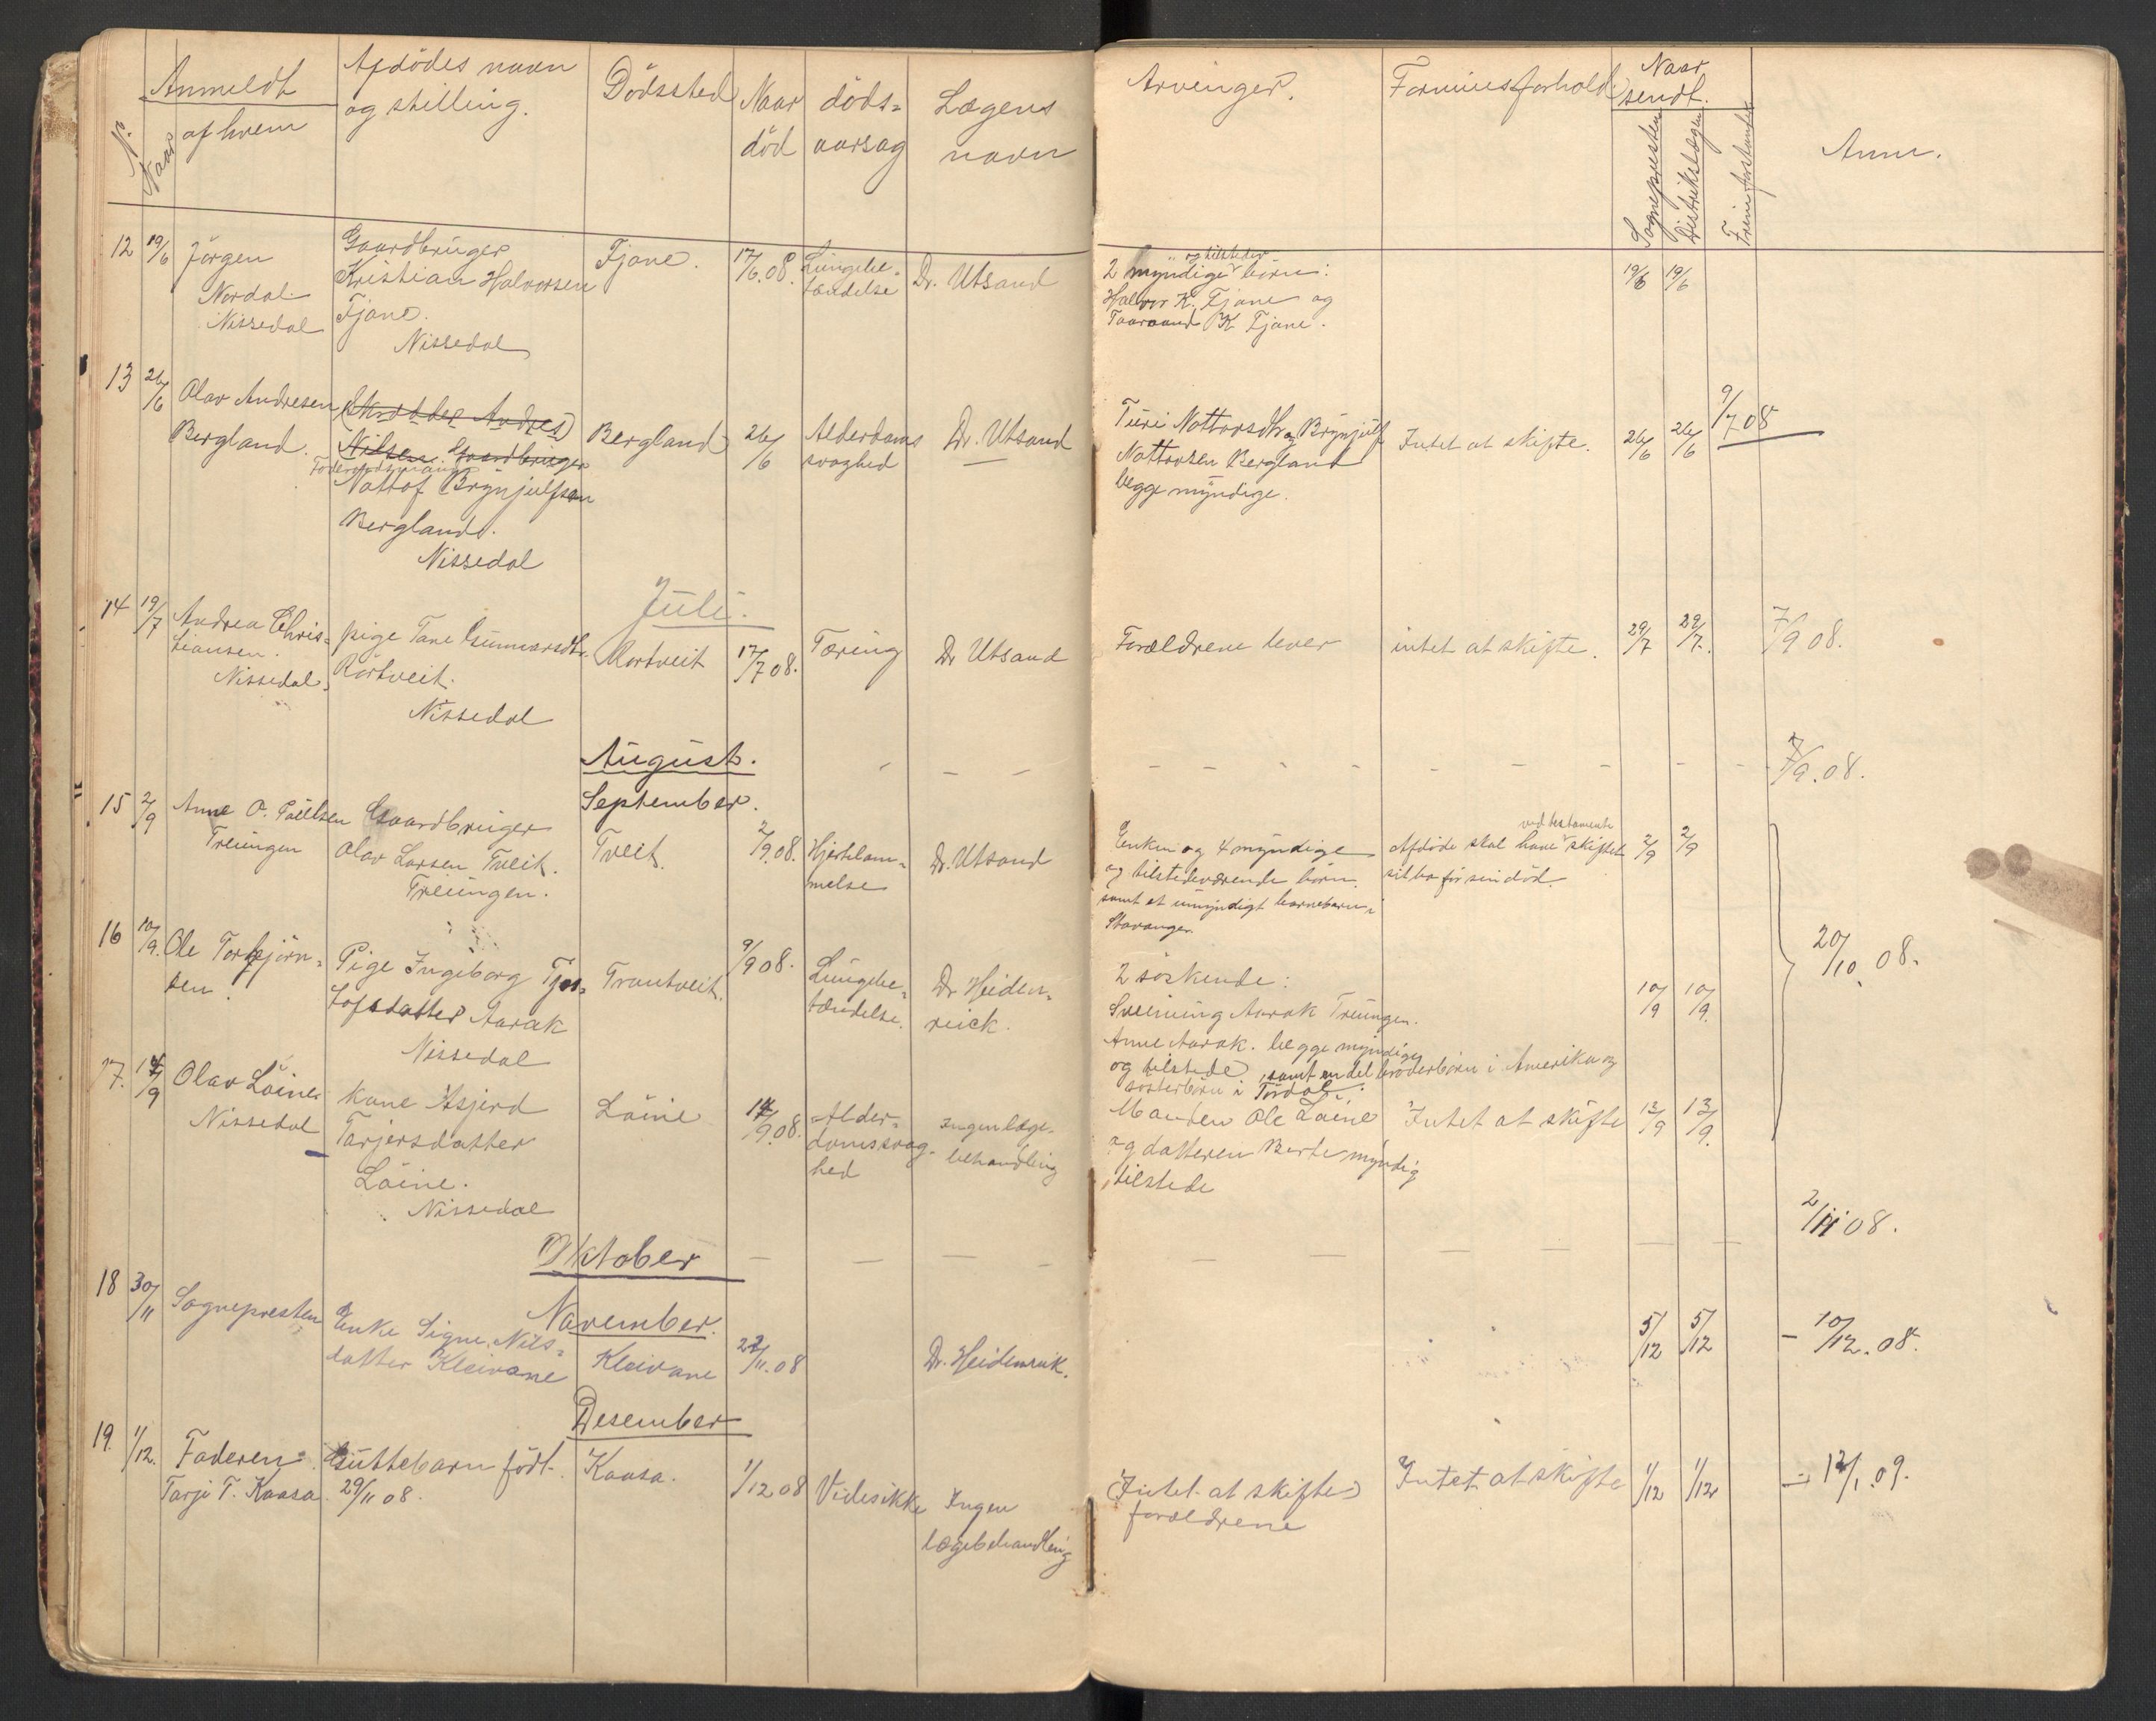 Anmeldt
No.
Naar
af hvem
Afdödes navn
og stilling.
Dödssted
Naar
död
döds-
aarsag
Lægens
navn
Arvinger.
Formuesforhold
Naar
sendt.
Sognepresten
Distriktslægen
Anm.
12 19/6 Jörgen
Nordal
Nissedal
Gaardbruger
Kristian Halvorsen
Tjane.
Nissedal
Tjane.
17/6.08.
Lungebe-
tændelse
Dr. Utsand
og tilsteder
2 myndige börn:
Halvor K. Tjane og
Taaraand K Tjane.
19/6 19/6
13 26/6 Olav Andresen
Bergland.
(Skrædder Andres)
Nilsen. Gaardbruger
Föderaadsmand
Nottof Brynjulfsen
Bergland.
Nissedal
Bergland
26/6
Alderdoms
svaghed
Dr. Utsand
Turi Nottovsdtr og Brynjulf
Nottovsen Bergland
begge myndige.
Intet at skifte.
26/6 26/6
9/7 08
Juli.
14 19/7 Andrea Chris-
tiansen.
Nissedal.
pige Tane Gunnarsdtr.
Rörtveit.
Nissedal
Rortveit
17/7 08.
Tæring
Dr Utsand
Forældrene lever
intet at skifte.
29/7 29/7.
7/9 08.
August.
- - - - - - - - - - - -
7/9.08.
September.
15 2/9 Anne O. Poulsen
Treungen
Gaardbruger
Olav Larsen Tveit.
Treungen.
Tveit.
2/9.08.
Hjertelam-
melse
Dr. Utsand
Enken og 4 myndige
og tilstedeværende börn.
samt et umyndigt barnebarn i
Stavanger.
ved testamente
Afdöde skal have skiftet
sit bo för sin död.
2/9 2/9
16 10/9. Ole Torbjörn-
sen.
Pige Ingeborg Tjos-
tofsdatter Aarak
Nissedal
Trontveit.
9/9 08.
Lungebe-
tændelse.
Dr Heiden-
reick.
2 söskende:
Sveinung Aarak Treungen.
Anne Aarak. begge myndige
og tilstede, samt en del broderbörn i Amerika og
sösterbörn i Tördal.
10/9 10/9.
20/10. 08.
17. 14/9 Olav Löine
Nissedal
Kone Asjerd
Tarjersdatter
Löine.
Nissedal
Löine
14/9.08.
Alder-
domssvag-
hed
Ingen læge-
behandling
Manden Ole Löine
og datteren Berte myndig
tilstede
Intet at skifte
13/9 13/9.
Oktober
- - - - - - - - - -
2/11 08.
November.
18 30/11 Sognepresten
Enke Signe Nils-
datter Kleivane
Kleivane
22/11.08
Dr. Heidenreik.
5/12 5/12
- 10/12.08.
Desember
19. 1/12. Faderen
Tarje T. Kaasa
Guttebarn född
29/11 08.
Kaasa.
1/12 08
Vides ikke
Ingen
lægebehandling
(Intet at skifte)
forældrene
Intet at skifte
1/12 1/12
- 12/1.09.